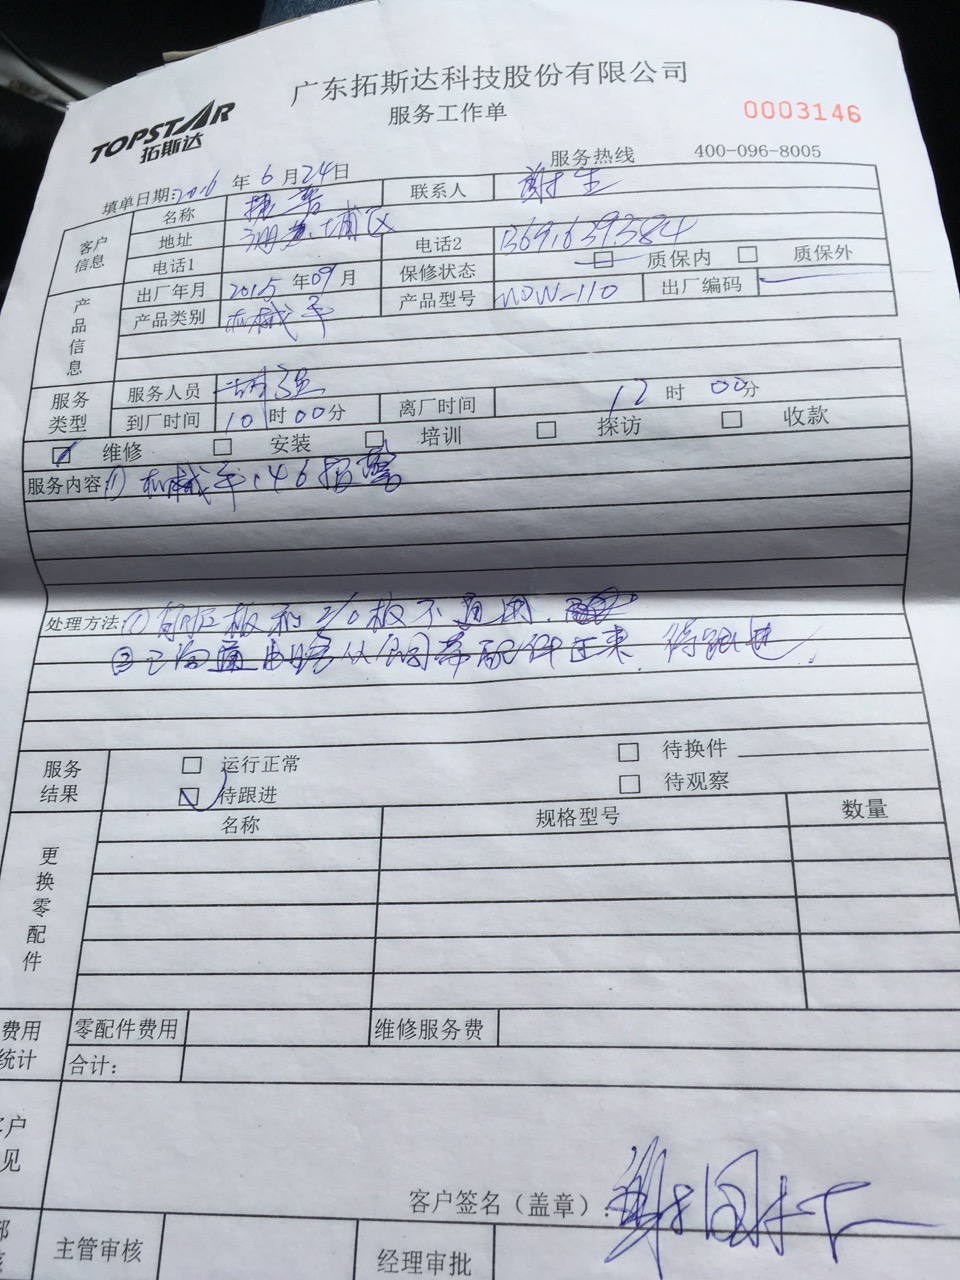 广东拓斯达科技股份有限公司
TOPSTAR
拓斯达
服务工作单
0003146
服务热线 400-096-8005
填单日期:2016 年 6 月 24 日
客户信息
名称 捷普 联系人 谢生
地址 黄埔区
电话1 电话2 13691639384
产品信息
出厂年月 2015 年 09 月 保修状态 质保内 质保外
产品类别 机械手 产品型号 WDW-110 出厂编码
服务类型
服务人员 胡强
到厂时间 10 时 00 分 离厂时间 12 时 00 分
维修 安装 培训 探访 收款
服务内容: 1) 机械手146报警
处理方法: ① 伺服板和I/O板不通用.
② 已沟通 从公司寄配件过来,待跟进.
服务结果
运行正常 待换件
待跟进 待观察
更换零配件
名称 规格型号 数量
费用统计
零配件费用 维修服务费
合计:
户
见
客户签名(盖章):
主管审核 经理审批